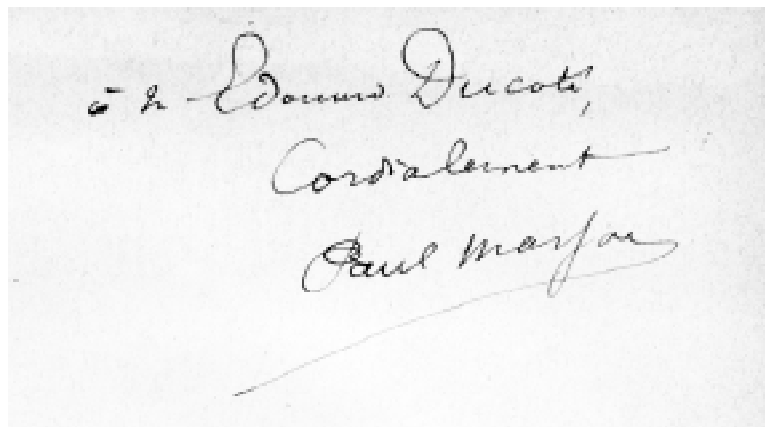 à M. Edouard Ducoté,
Cordialement
Paul Masson